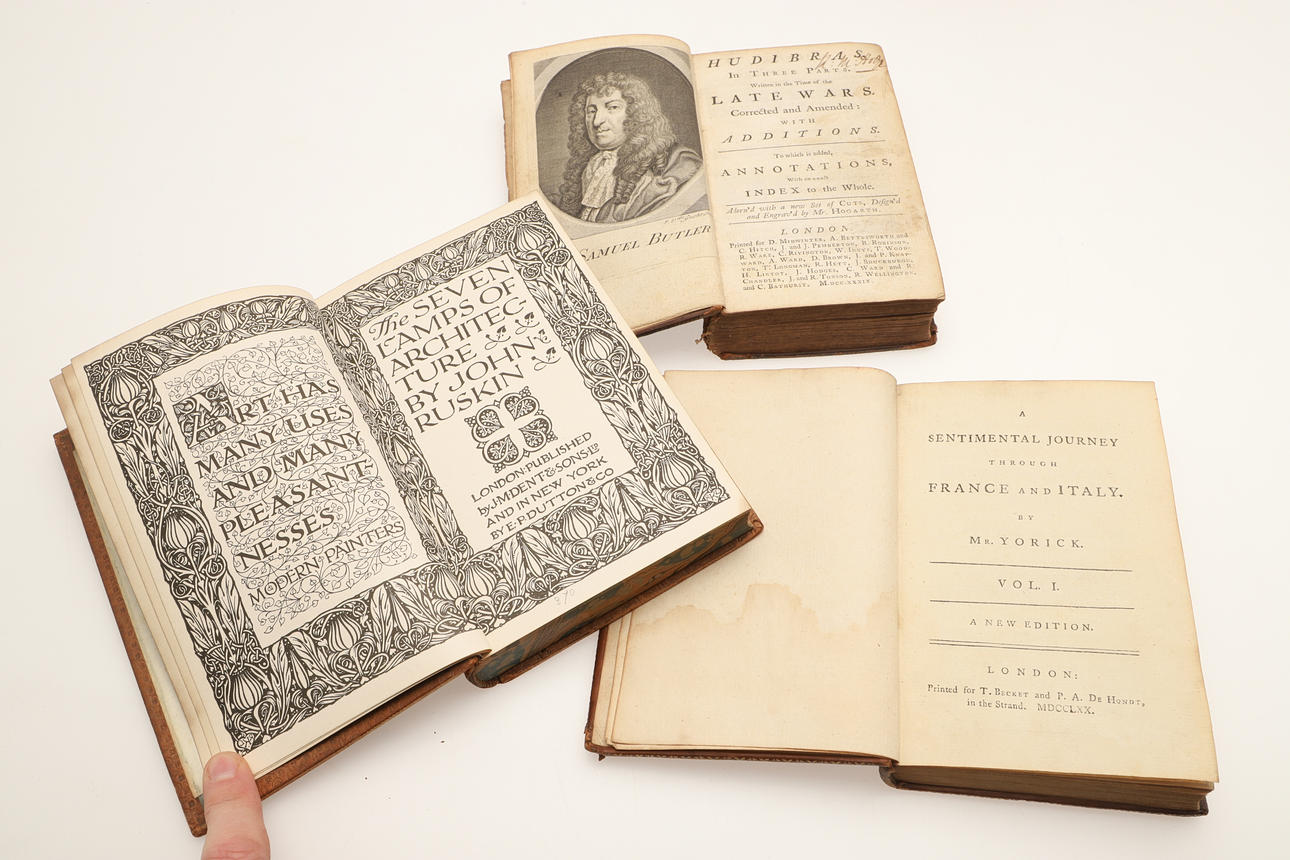 HUDIBRAS.
In THREE PARTS.
Written in the Time of the
LATE WARS.
Corrected and Amended:
WITH
ADDITIONS.
To which is added,
ANNOTATIONS,
With an exact
INDEX to the Whole.
Adorn'd with a new Set of CUTS, Design'd
and Engrav'd by Mr. HOGARTH.
LONDON:
Printed for D. MIDWINTER, A. BETTESWORTH and
C. HITCH, J. and J. PEMBERTON, R. ROBINSON,
R. WARE, C. RIVINGTON, W. INNYS, T. WOOD-
WARD, A. WARD, D. BROWN, J. and P. KNAP-
TON, T. LONGMAN, R. HETT, J. SHUCKBURGH,
H. LINTOT, J. HODGES, C. WARD and R.
CHANDLER, J. and R. TONSON, R. WELLINGTON,
and C. BATHURST. M.DCC.XXXIX.
SAMUEL BUTLER
ART·HAS
MANY·USES
AND·MANY
PLEASANT-
NESSES
MODERN·PAINTERS
The SEVEN
LAMPS OF
ARCHITEC-
TURE
BY JOHN
RUSKIN
LONDON·PUBLISHED
by J·M·DENT·&·SONS·LTD
AND IN NEW YORK
BY E·P·DUTTON & CO
A
SENTIMENTAL JOURNEY
THROUGH
FRANCE AND ITALY.
BY
MR. YORICK.
VOL. I.
A NEW EDITION.
LONDON:
Printed for T. BECKET and P. A. DE HONDT,
in the Strand. MDCCLXX.